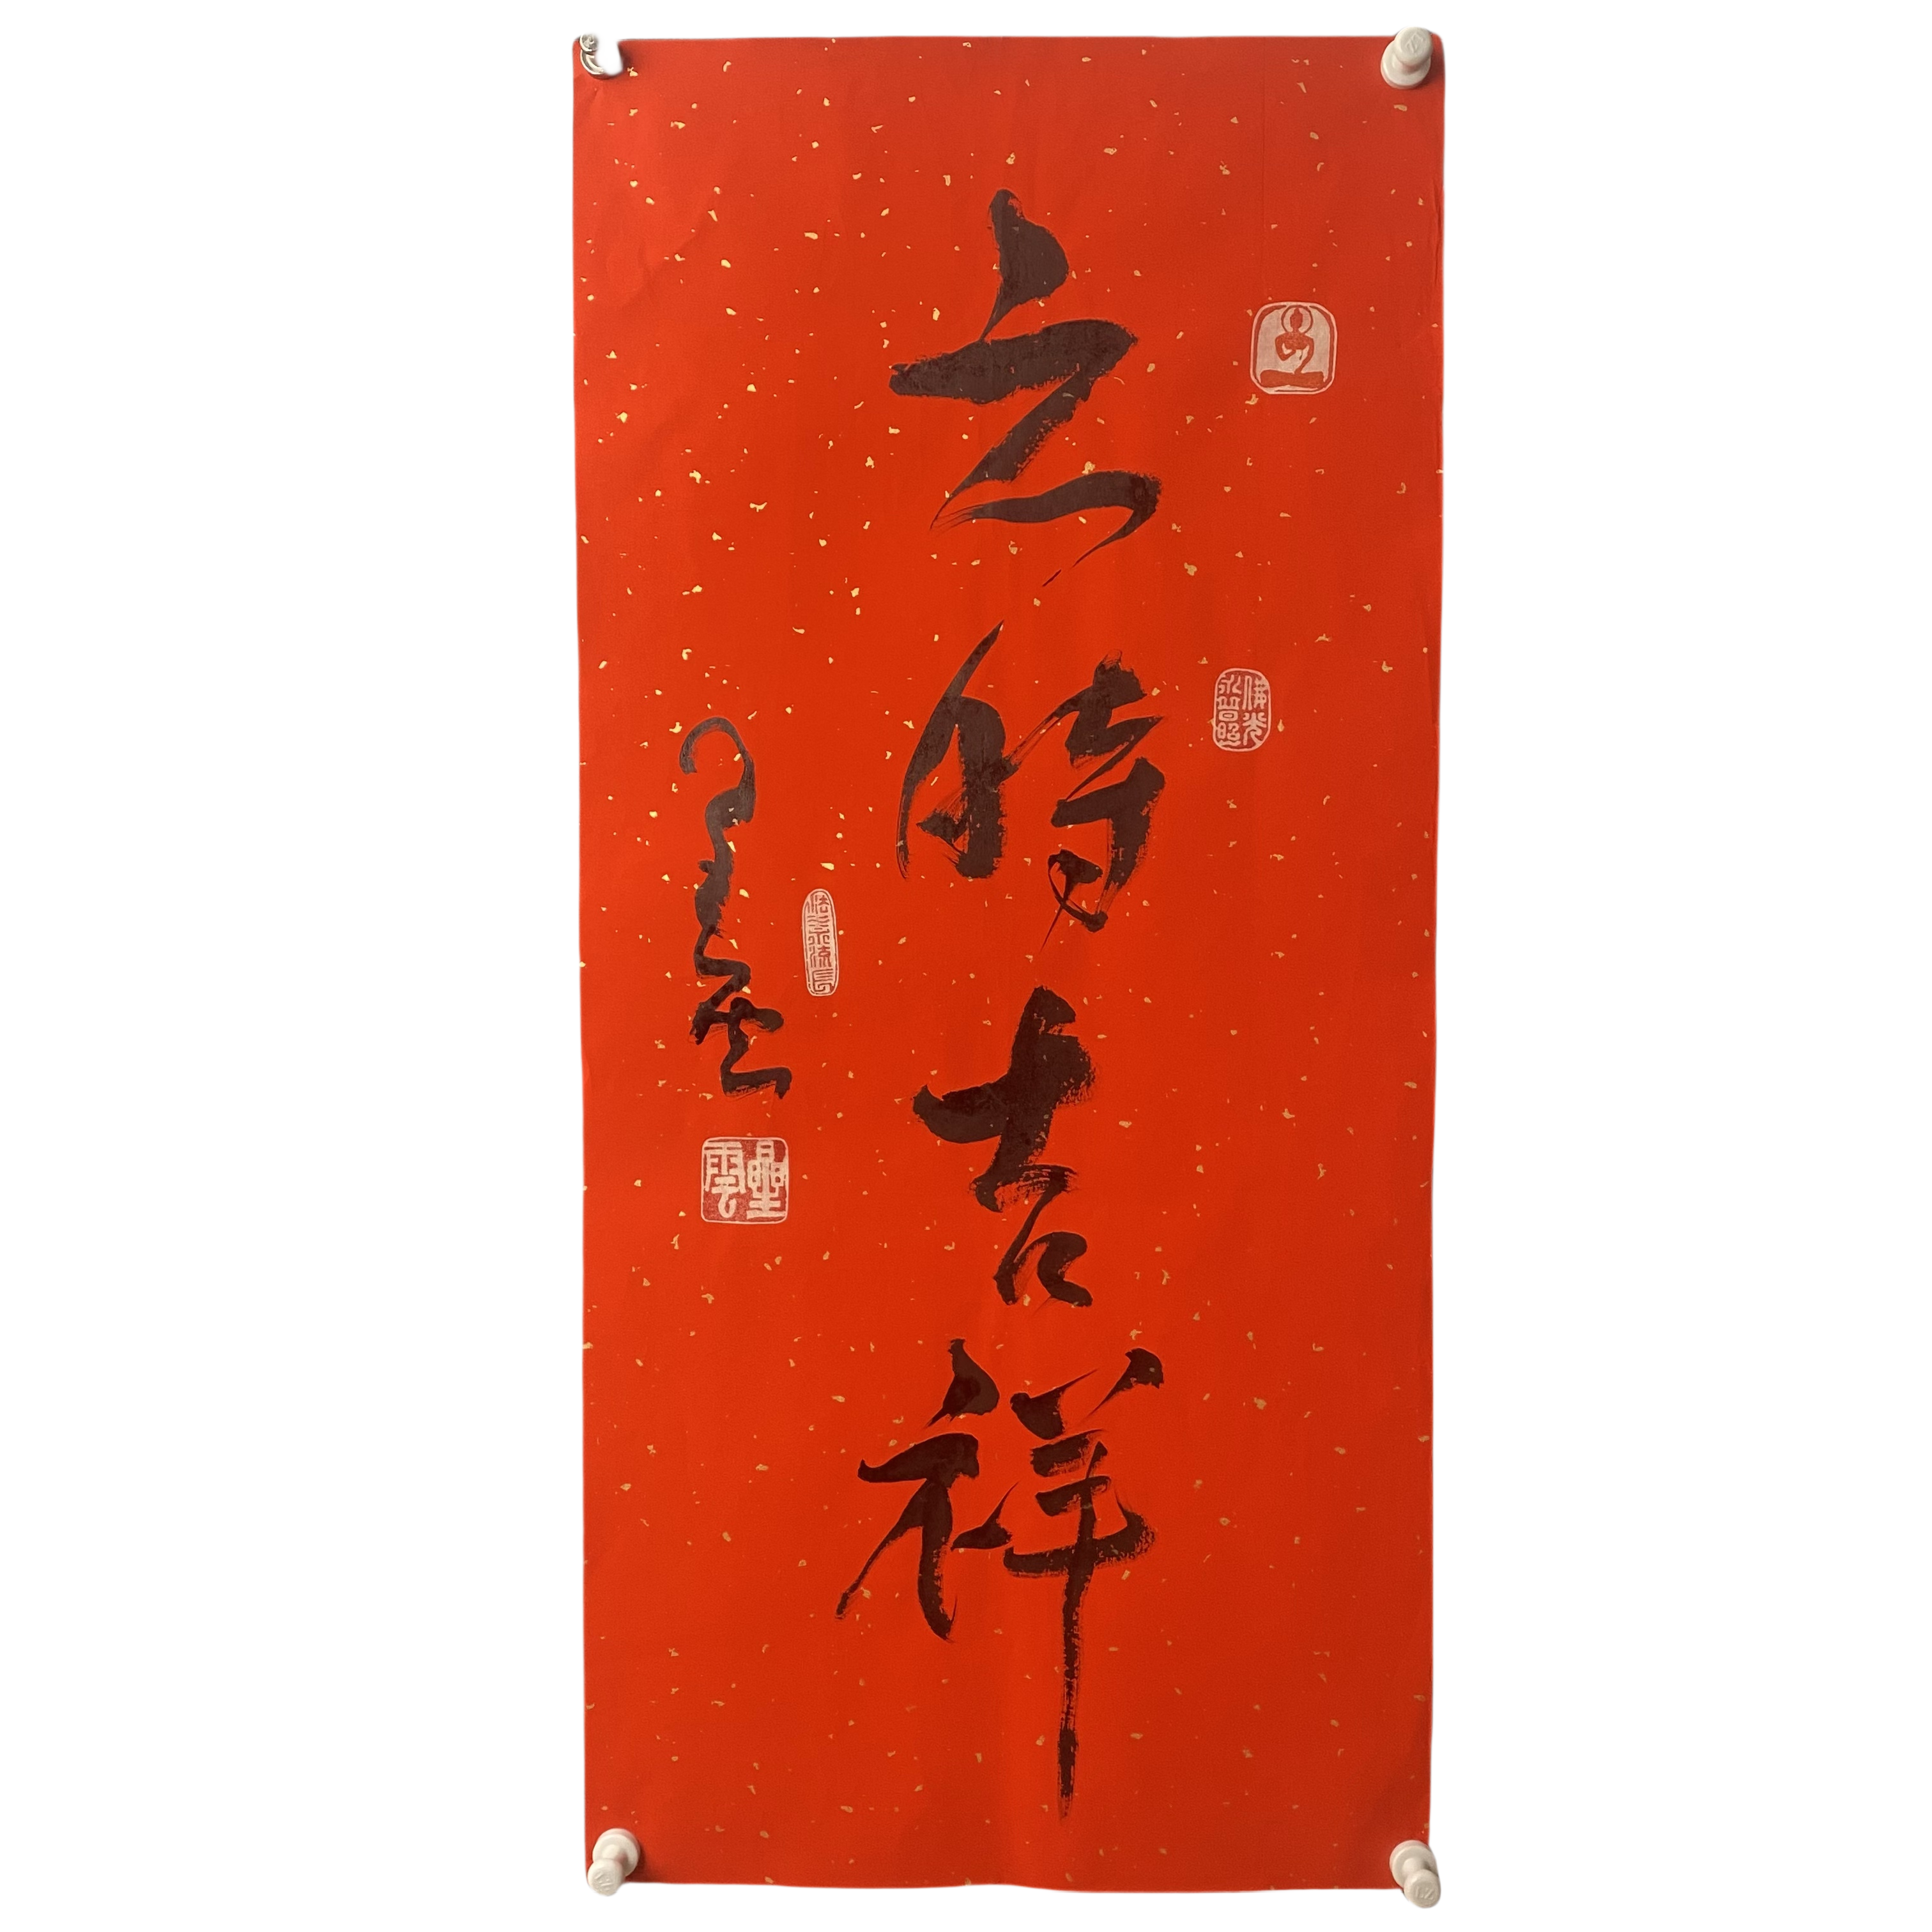 六時吉祥
佛光
永普照
法水流長
星雲
星雲